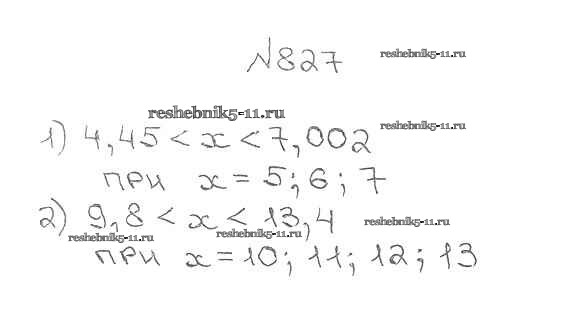 №827
reshebnik5-11.ru
reshebnik5-11.ru
reshebnik5-11.ru
1) 4,45 < x < 7,002
при x = 5; 6; 7
2) 9,8 < x < 13,4
reshebnik5-11.ru
reshebnik5-11.ru
reshebnik5-11.ru
при x = 10; 11; 12; 13